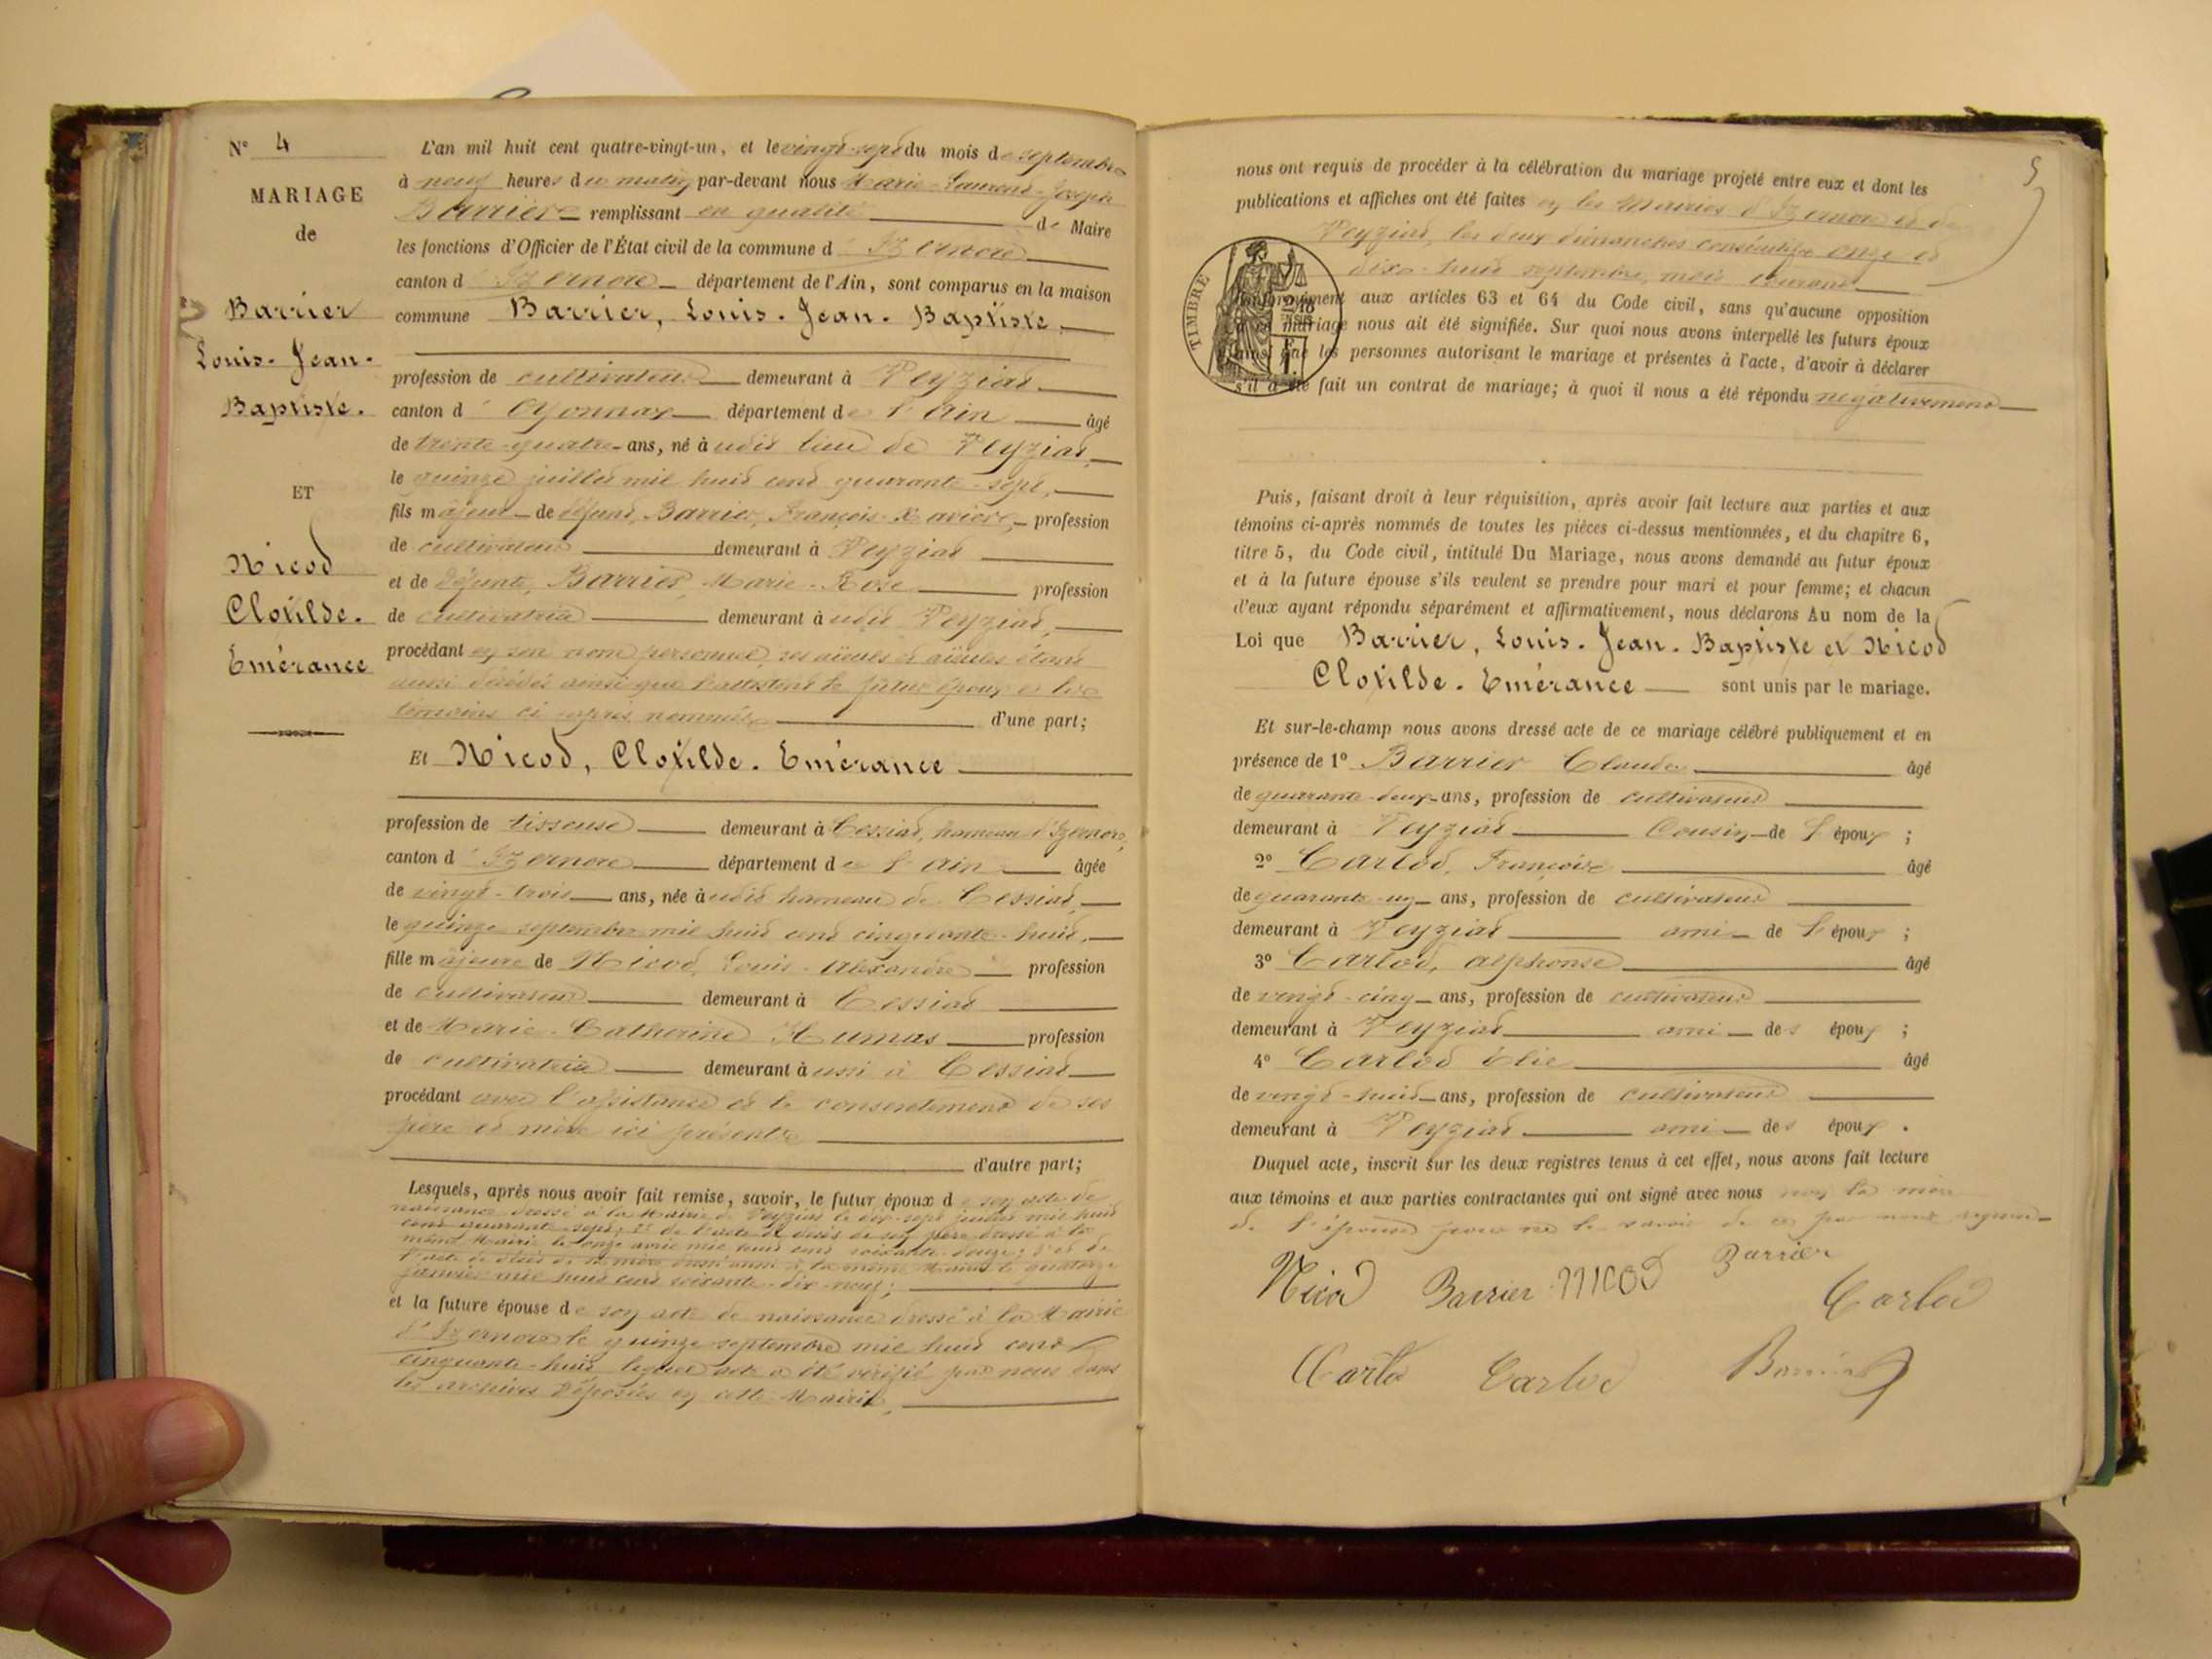 N° 4
MARIAGE
de
Barrier
Louis-Jean-
Baptiste.
ET
Nicod
Clotilde.
Emérance
L'an mil huit cent quatre-vingt-un, et le vingt-sept du mois de septembre
à neuf heures du matin par-devant nous Marie-Laurent-Joseph
Barrier remplissant en qualité de Maire
les fonctions d'Officier de l'État civil de la commune d'Izernore
canton d'Izernore département de l'Ain, sont comparus en la maison
commune Barrier, Louis-Jean-Baptiste,
profession de cultivateur demeurant à Veyziat
canton d'Oyonnax département de l'Ain âgé
de trente-quatre ans, né audit lieu de Veyziat,
le quinze juillet mil huit cent quarante-sept,
fils majeur de défunt, Barrier, François-Xavier, profession
de cultivateur demeurant à Veyziat
et de défunte, Barrier, Marie-Rose profession
de cultivatrice demeurant audit Veyziat,
procédant en son nom personnel, ses aïeuls et aïeules étant
aussi décédés ainsi que l'attestent le futur époux et les
témoins ci-après nommés d'une part;
Et Nicod, Clotilde. Emérance
profession de tisseuse demeurant à Cessiat, hameau d'Izernore,
canton d'Izernore département de l'Ain âgée
de vingt-trois ans, née audit hameau de Cessiat,
le quinze septembre mil huit cent cinquante-huit,
fille majeure de Nicod, Louis-Alexandre profession
de cultivateur demeurant à Cessiat
et de Marie-Catherine Humas profession
de cultivatrice demeurant aussi à Cessiat
procédant avec l'assistance et le consentement de ses
père et mère ici présents
d'autre part;
Lesquels, après nous avoir fait remise, savoir, le futur époux de son acte de
naissance dressé à la Mairie de Veyziat le dix-sept juillet mil huit
cent quarante-sept; 2° de l'acte de décès de son père dressé à la
même Mairie le onze avril mil huit cent soixante-douze; 3° et de
l'acte de décès de sa mère dressé aussi à la même Mairie le quatorze
janvier mil huit cent soixante-dix-neuf;
et la future épouse de son acte de naissance dressé à la Mairie
d'Izernore le quinze septembre mil huit cent
cinquante-huit lequel acte a été vérifié par nous dans
les archives déposées en cette Mairie,
5
nous ont requis de procéder à la célébration du mariage projeté entre eux et dont les
publications et affiches ont été faites en les Mairies d'Izernore et de
Veyziat, les deux dimanches consécutifs onze et
dix-huit septembre, mois courant
TIMBRE
conformément aux articles 63 et 64 du Code civil, sans qu'aucune opposition
mariage nous ait été signifiée. Sur quoi nous avons interpellé les futurs époux
ainsi que les personnes autorisant le mariage et présentes à l'acte, d'avoir à déclarer
s'il a été fait un contrat de mariage; à quoi il nous a été répondu négativement
Puis, faisant droit à leur réquisition, après avoir fait lecture aux parties et aux
témoins ci-après nommés de toutes les pièces ci-dessus mentionnées, et du chapitre 6,
titre 5, du Code civil, intitulé Du Mariage, nous avons demandé au futur époux
et à la future épouse s'ils veulent se prendre pour mari et pour femme; et chacun
d'eux ayant répondu séparément et affirmativement, nous déclarons Au nom de la
Loi que Barrier, Louis-Jean-Baptiste et Nicod
Clotilde-Emérance sont unis par le mariage.
Et sur-le-champ nous avons dressé acte de ce mariage célébré publiquement et en
présence de 1° Barrier Claude âgé
de quarante-deux ans, profession de cultivateur
demeurant à Veyziat Cousin de l'époux;
2° Carlod, François âgé
de quarante-un ans, profession de cultivateur
demeurant à Veyziat ami de l'époux;
3° Carlod, alphonse âgé
de vingt-cinq ans, profession de cultivateur
demeurant à Veyziat ami des époux;
4° Carlod Elie âgé
de vingt-huit ans, profession de cultivateur
demeurant à Veyziat ami des époux.
Duquel acte, inscrit sur les deux registres tenus à cet effet, nous avons fait lecture
aux témoins et aux parties contractantes qui ont signé avec nous non la mère
de l'épouse pour ne le savoir de ce par nous
Nicod Barrier Nicod Barrier
Carlod
Carlod Carlod Barrier